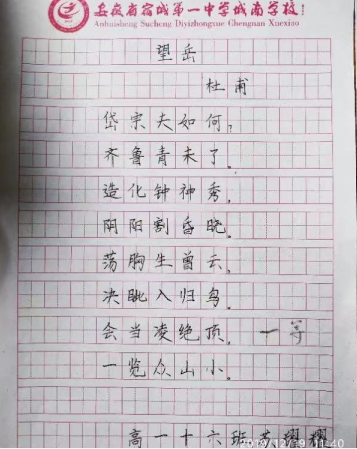 安徽省宿城第一中学城南学校
Anhuisheng Sucheng Diyizhongxue Chengnan Xuexiao
望岳
杜甫
岱宗夫如何，
齐鲁青未了。
造化钟神秀，
阴阳割昏晓。
荡胸生曾云，
决眦入归鸟。
会当凌绝顶， 一等
一览众山小。
高一十六班
2019/12/19 11:40